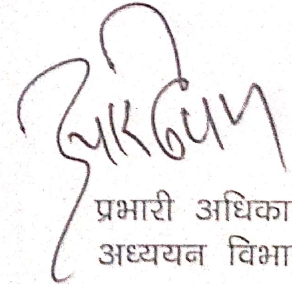 प्रभारी अधिका
अध्ययन विभा